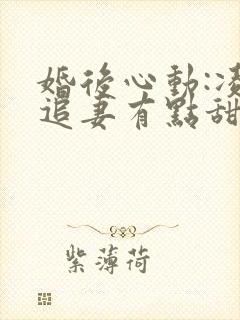 婚後心動:凌
追妻有點甜
紫薄荷